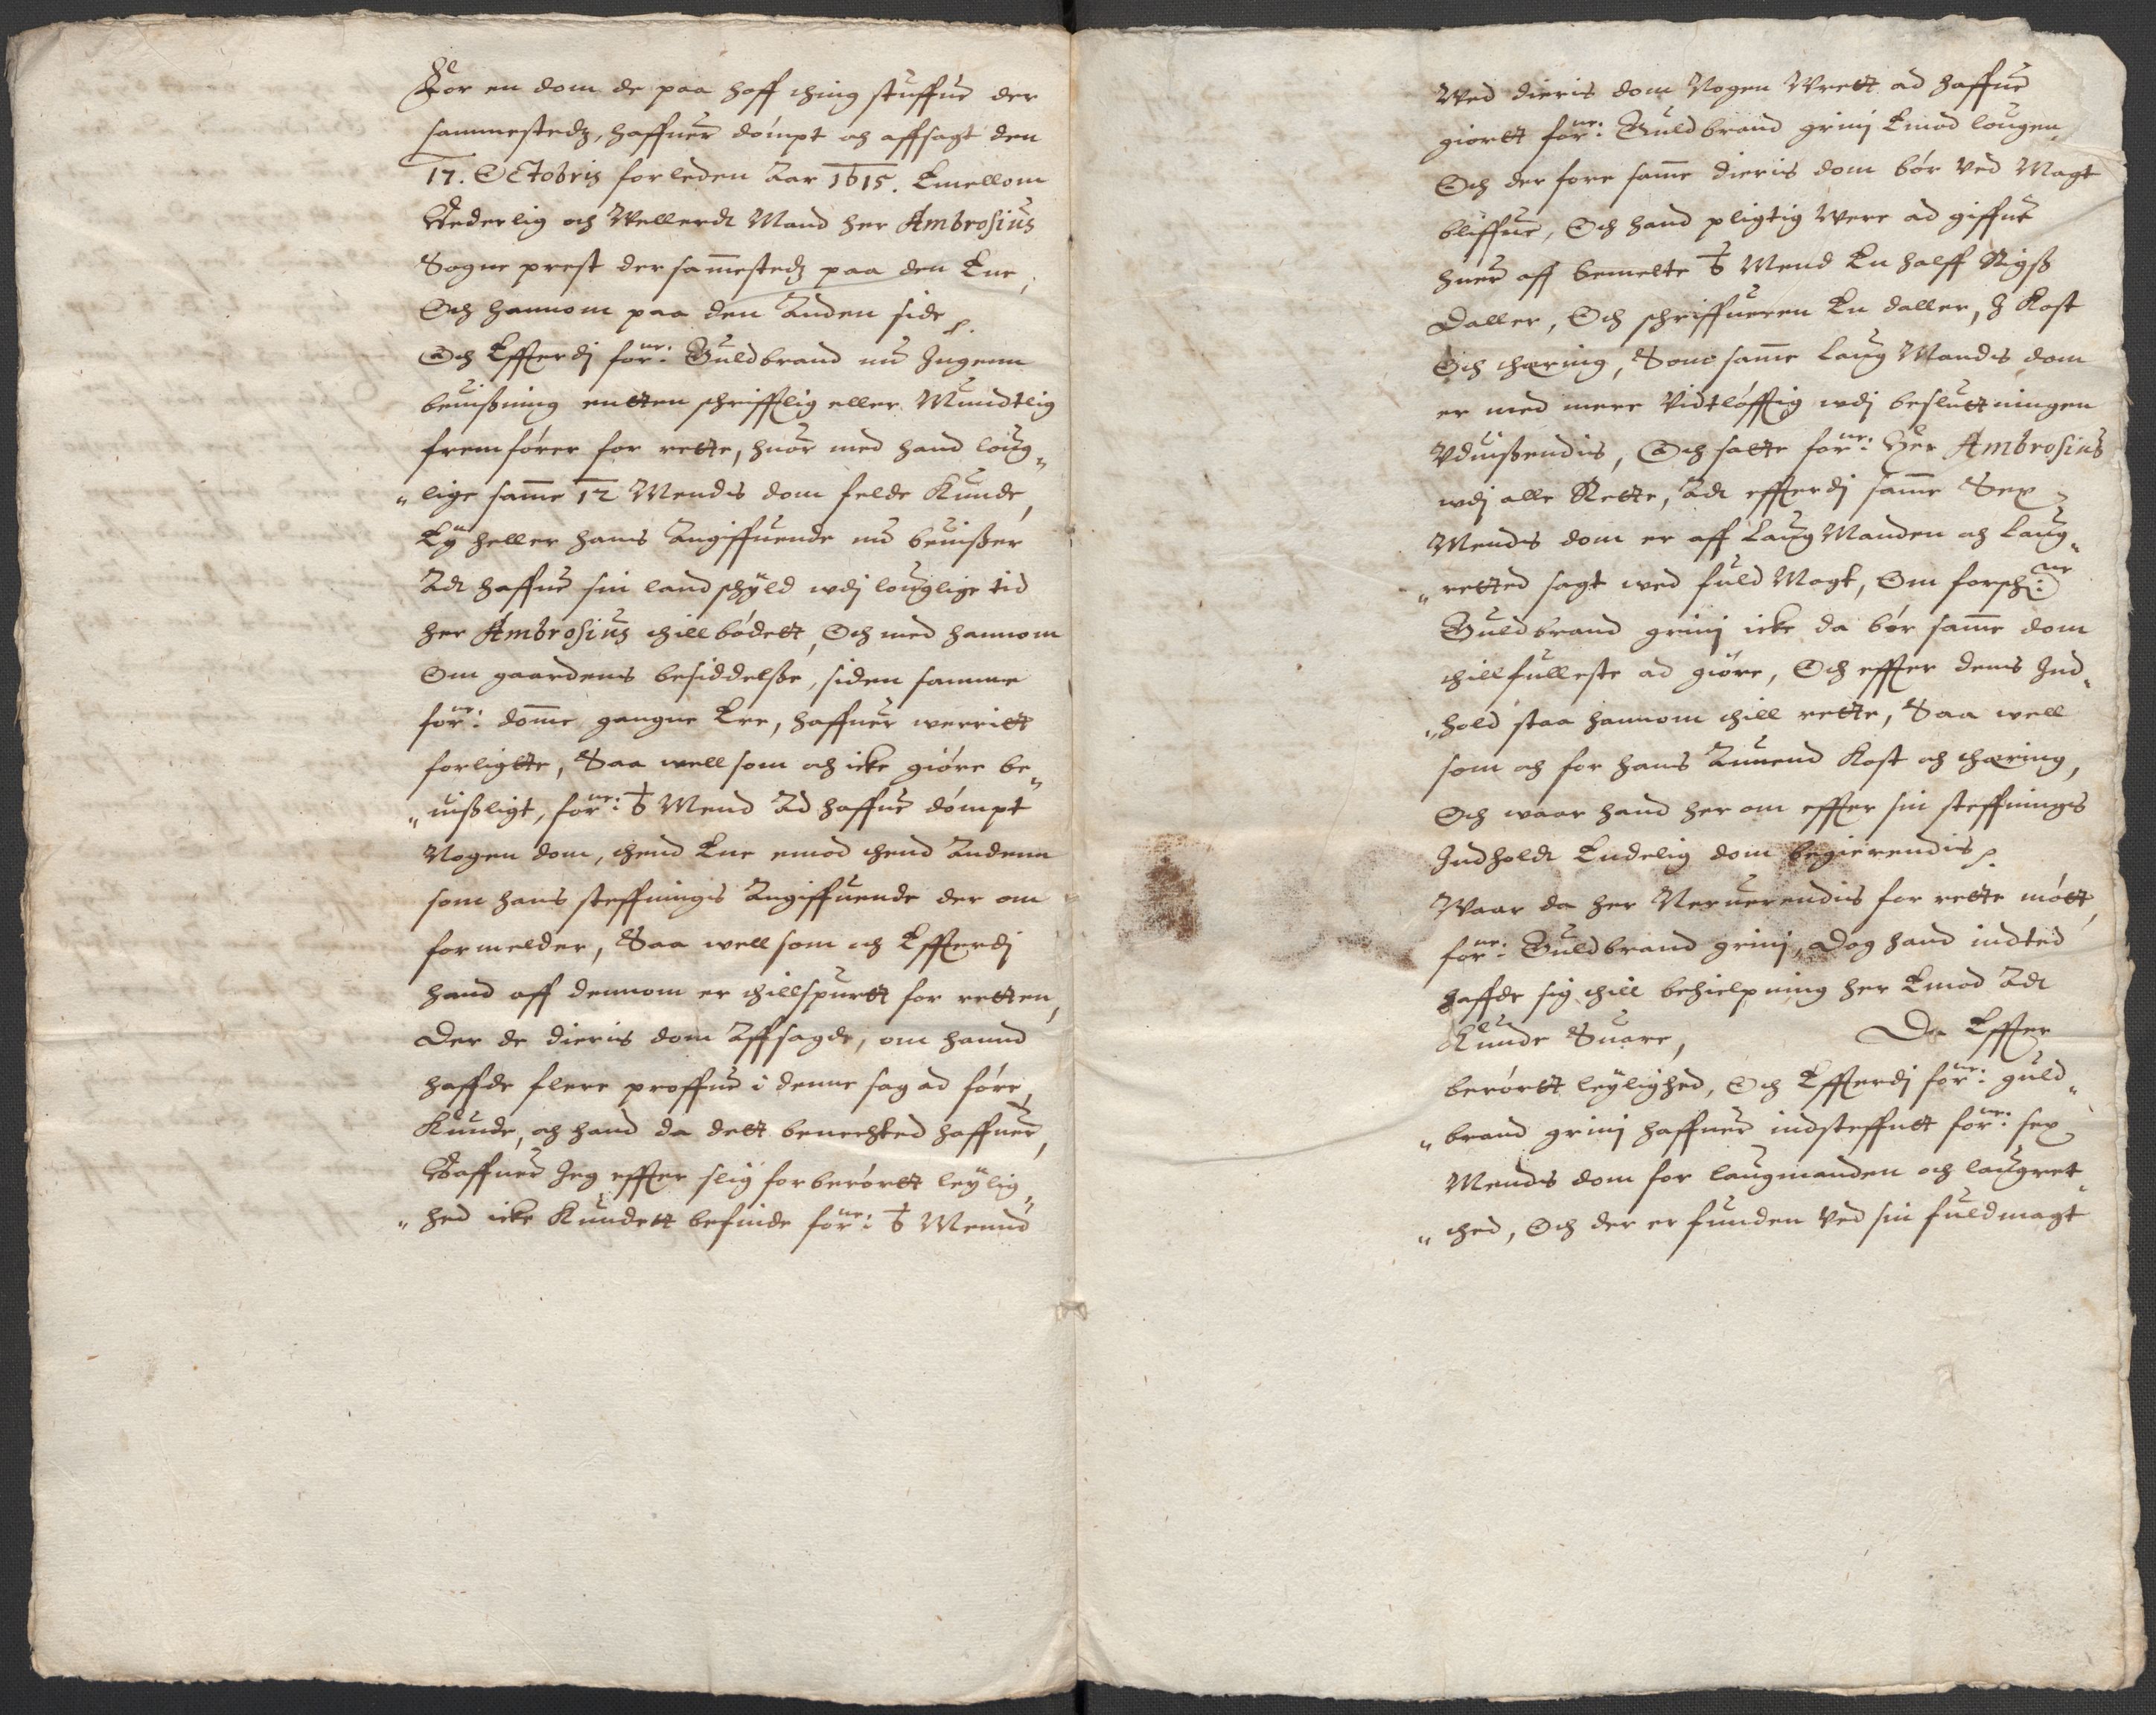 For en dom de paa hoff thing stuffue der
sammestedz, haffuer dømpt och affsagt den
17. Octobris forleden Aar 1615. Emellom
Hederlig och Wellerdt Mand her Ambrosius
Sogne prest der sam̄estedz paa den Ene,
Och hannom paa den Anden side
Och Effterdj forne: Guldbrand nu Ingenn
beuißning entten schrifftlig eller Mundtlig
fremfører for rette, huor med hand loug„
„lige sam̄e 12 Mendis dom felde Kunde,
Ey heller hans Angiffuende nu beuißer
Adt haffue sin landschyld wdj louglige tid
her Ambrosius thillbødett, Och med hannom
Om gaardens besiddelße, siden samme
forne: dom̄e gangne Ere, haffuer werritt
forligtte, Saa well som och icke giøre be„
„uißligt, forne: 6 Mend Ad haffue dømpt
Nogen dom, thend Ene emod thend Andenn
som hans steffnings Angiffuende der om
formelder, Saa well som och Effterdj
hand aff dennom er thillspurtt for retten,
Der de dieris dom Affsagde, om hannd
haffde flere proffue i denne sag ad føre,
Kunde, och hand da dett benechted haffuer,
Haffuer Jeg effter slig forberørtt leylig„
„hed icke Kundett befinde forne: 6 Mennd
Wed dieris dom Nogen Wrett ad haffue
giortt forne: Guldbrand grinj Emod lougen
Och der fore sam̄e dieris dom bør Ved Magt
bliffue, Och hand pligtig Were ad giffue
huer aff bemelte 6 Mend En halff Rigß
Daller, Och schriffueren En daller, J Kost
Och thæring, Som sam̄e Laug Mandis dom
er med mere Vidtløfftig wdj besluttningen
Vduißendis, Och satte forne: Her Ambrosius
wdj alle Rette, Adt effterdj sam̄e Sex
Mendis dom er aff Laug Manden och Laug„
„retted sagt wed fuld Magt, Om forschne:
Guldbrand grinj icke da bør sam̄e dom
thillfulleste ad giøre, Och effter dens Ind„
„hold staa hannom thill rette, Saa well
som och for hans Anuend Kost och thæring,
Och waar hand her om effter sin steffnings
Indholdt Endelig dom begierendis
Waar da her Neruerendis for rette møtt,
forne: Guldbrand grinj, Dog hand indted
haffde sig thill behielpning her Emod Adt
Kunde Suare, Da Effter
berørtt leylighed, Och Effterdj forne: guld„
„brand grinj haffuer indsteffnett forne: sex
Mendis dom for laugmanden och laugret„
„thed, Och der er funden Ved sin fuldmagt